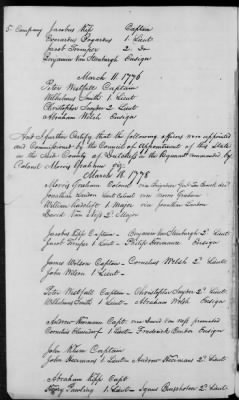 5 Company Jacobus Kip Captain
Everardus Bogardus 1 Lieut
Jacob Tremper 2 Do
Benjamin Van Steenburgh Ensign
March 11. 1776
Peter Westfall Captain
Wilhelmus Smith 1 Lieut
Christopher Snyder 2 Lieut
Abraham Welch Ensign
And I further Certify that the following officers were appointed
and Commissioned by the Council of Appointment of this State
in the said County of Dutchess in the Regiment commanded by
Colonel Morris Graham
March 18. 1778
Morris Graham Colonel vice
Jonathan Landon Lieut Colonel vice Morris Graham
William Radclift 1 Major vice Jonathan Landon
David Van Ness 2 Major
Jacobus Kipp Captain - Benjamin Van Steenbergh 2 Lieut
Jacob Tremper 1 Lieut - Philip Ensign
James Wilson Captain - Cornelius Welsh 2 Lieut
John Wilson 1 Lieut -
Peter Westfall Captain - Christopher Snyder 2 Lieut
Wilhelmus Smith 1 Lieut - Abraham Welsh Ensign
Andrew Hermans Capt vice David Van Ness promoted
Cornelius 1 Lieut - Frederick Ensign
John Klum Captain
John Heermans 1 Lieut - Andrew Heermans 2 Lieut
Abraham Kipp Capt
Henry Pawling 1 Lieut - 2 Lieut